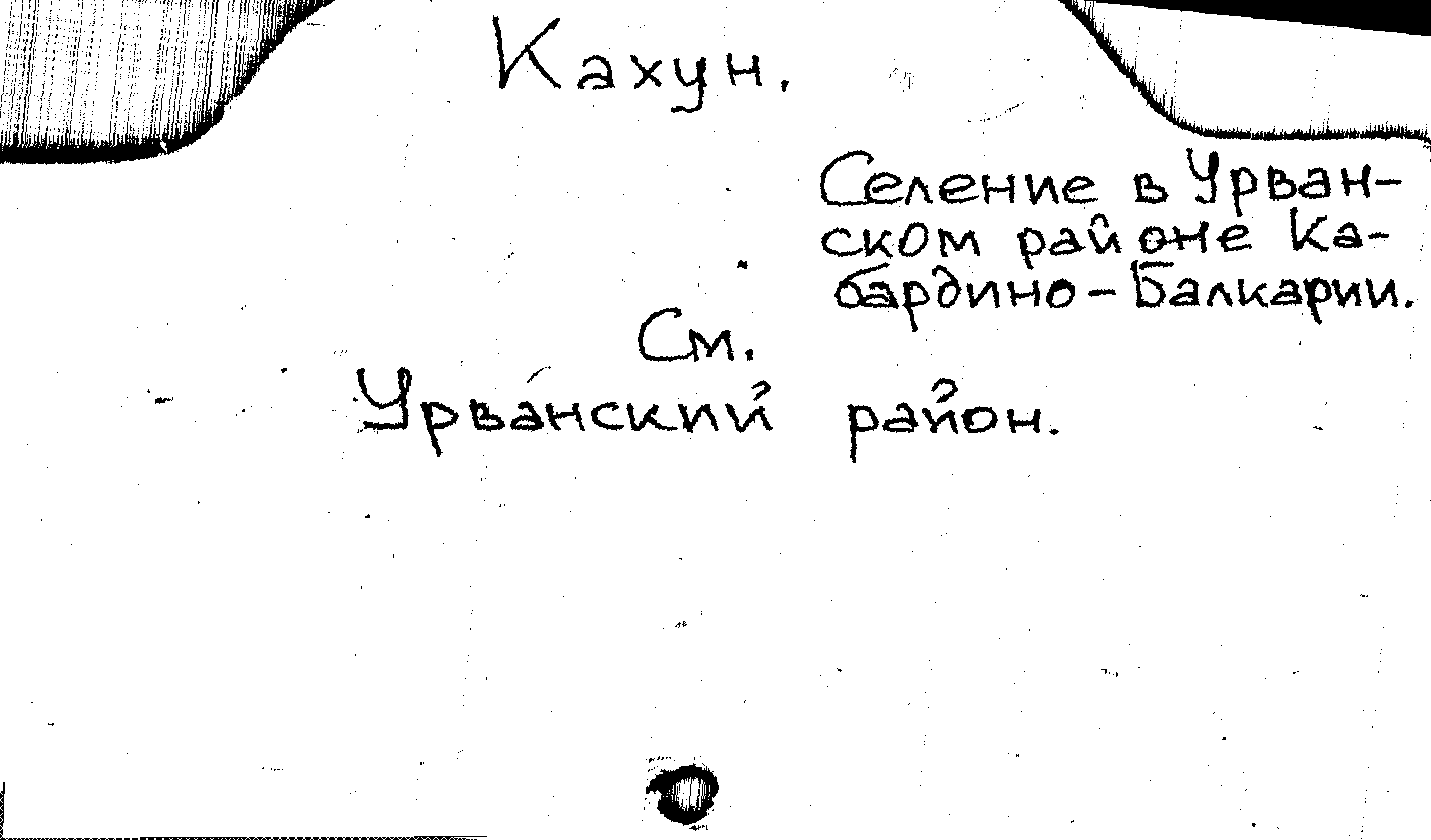 Кахун.
Селение в Урван-
ском районе Ка-
бардино-Балкарии.
См.
Урва́нский район.